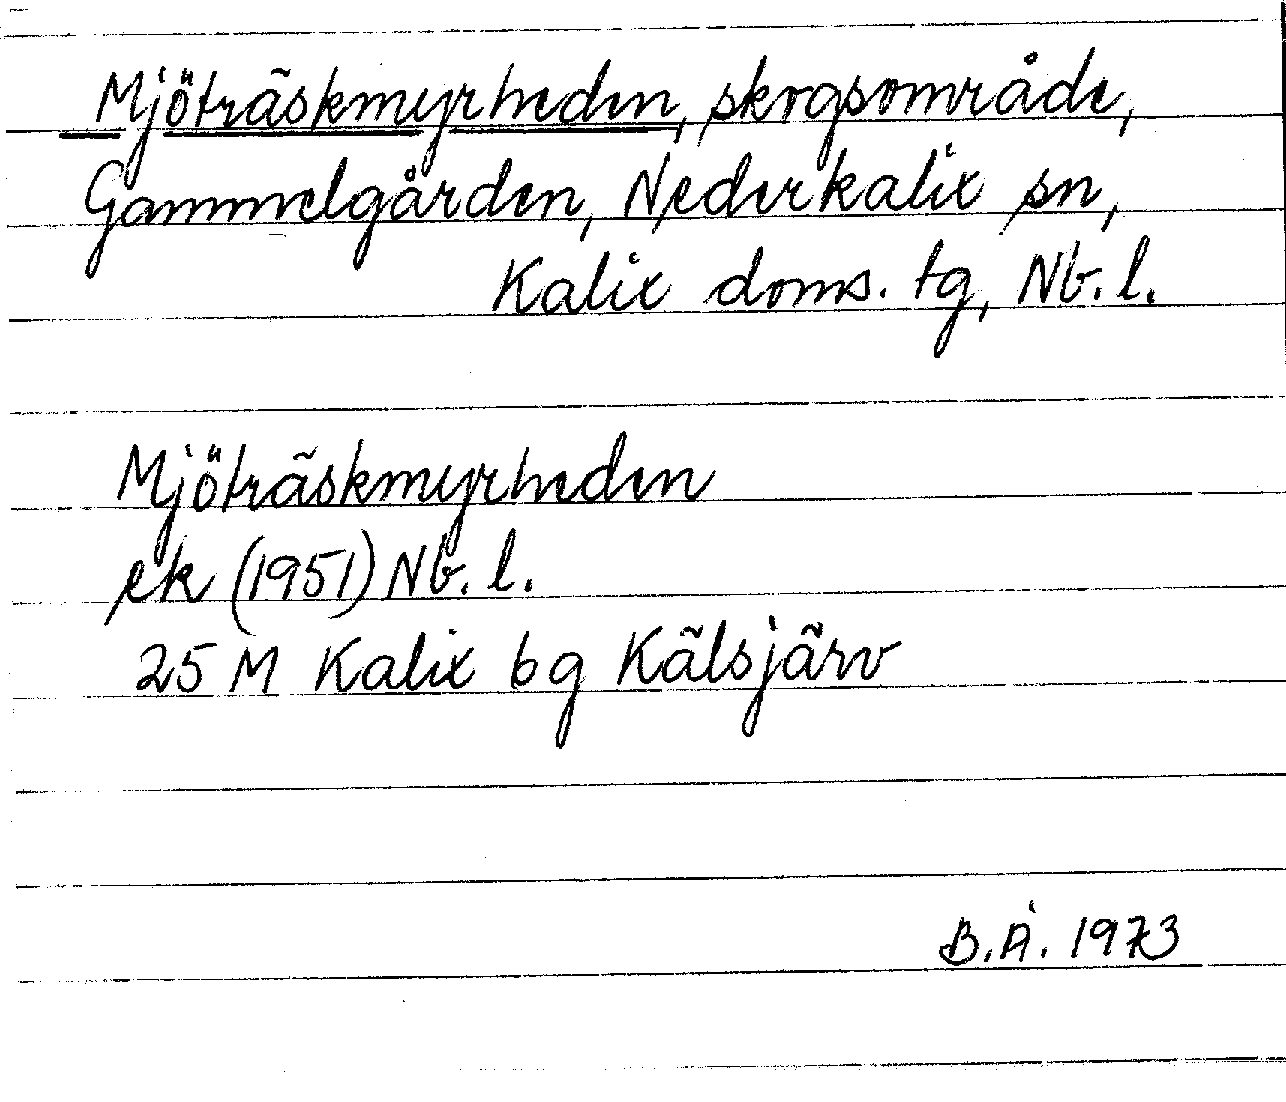 Mjöträskmyrheden, skogsområde,
Gammelgården, Nederkalix sn,
Kalix doms. tg, Nb. l.
Mjöträskmyrheden
ek (1951) Nb. l.
25 M Kalix bg Kälsjärv
B.Å. 1973